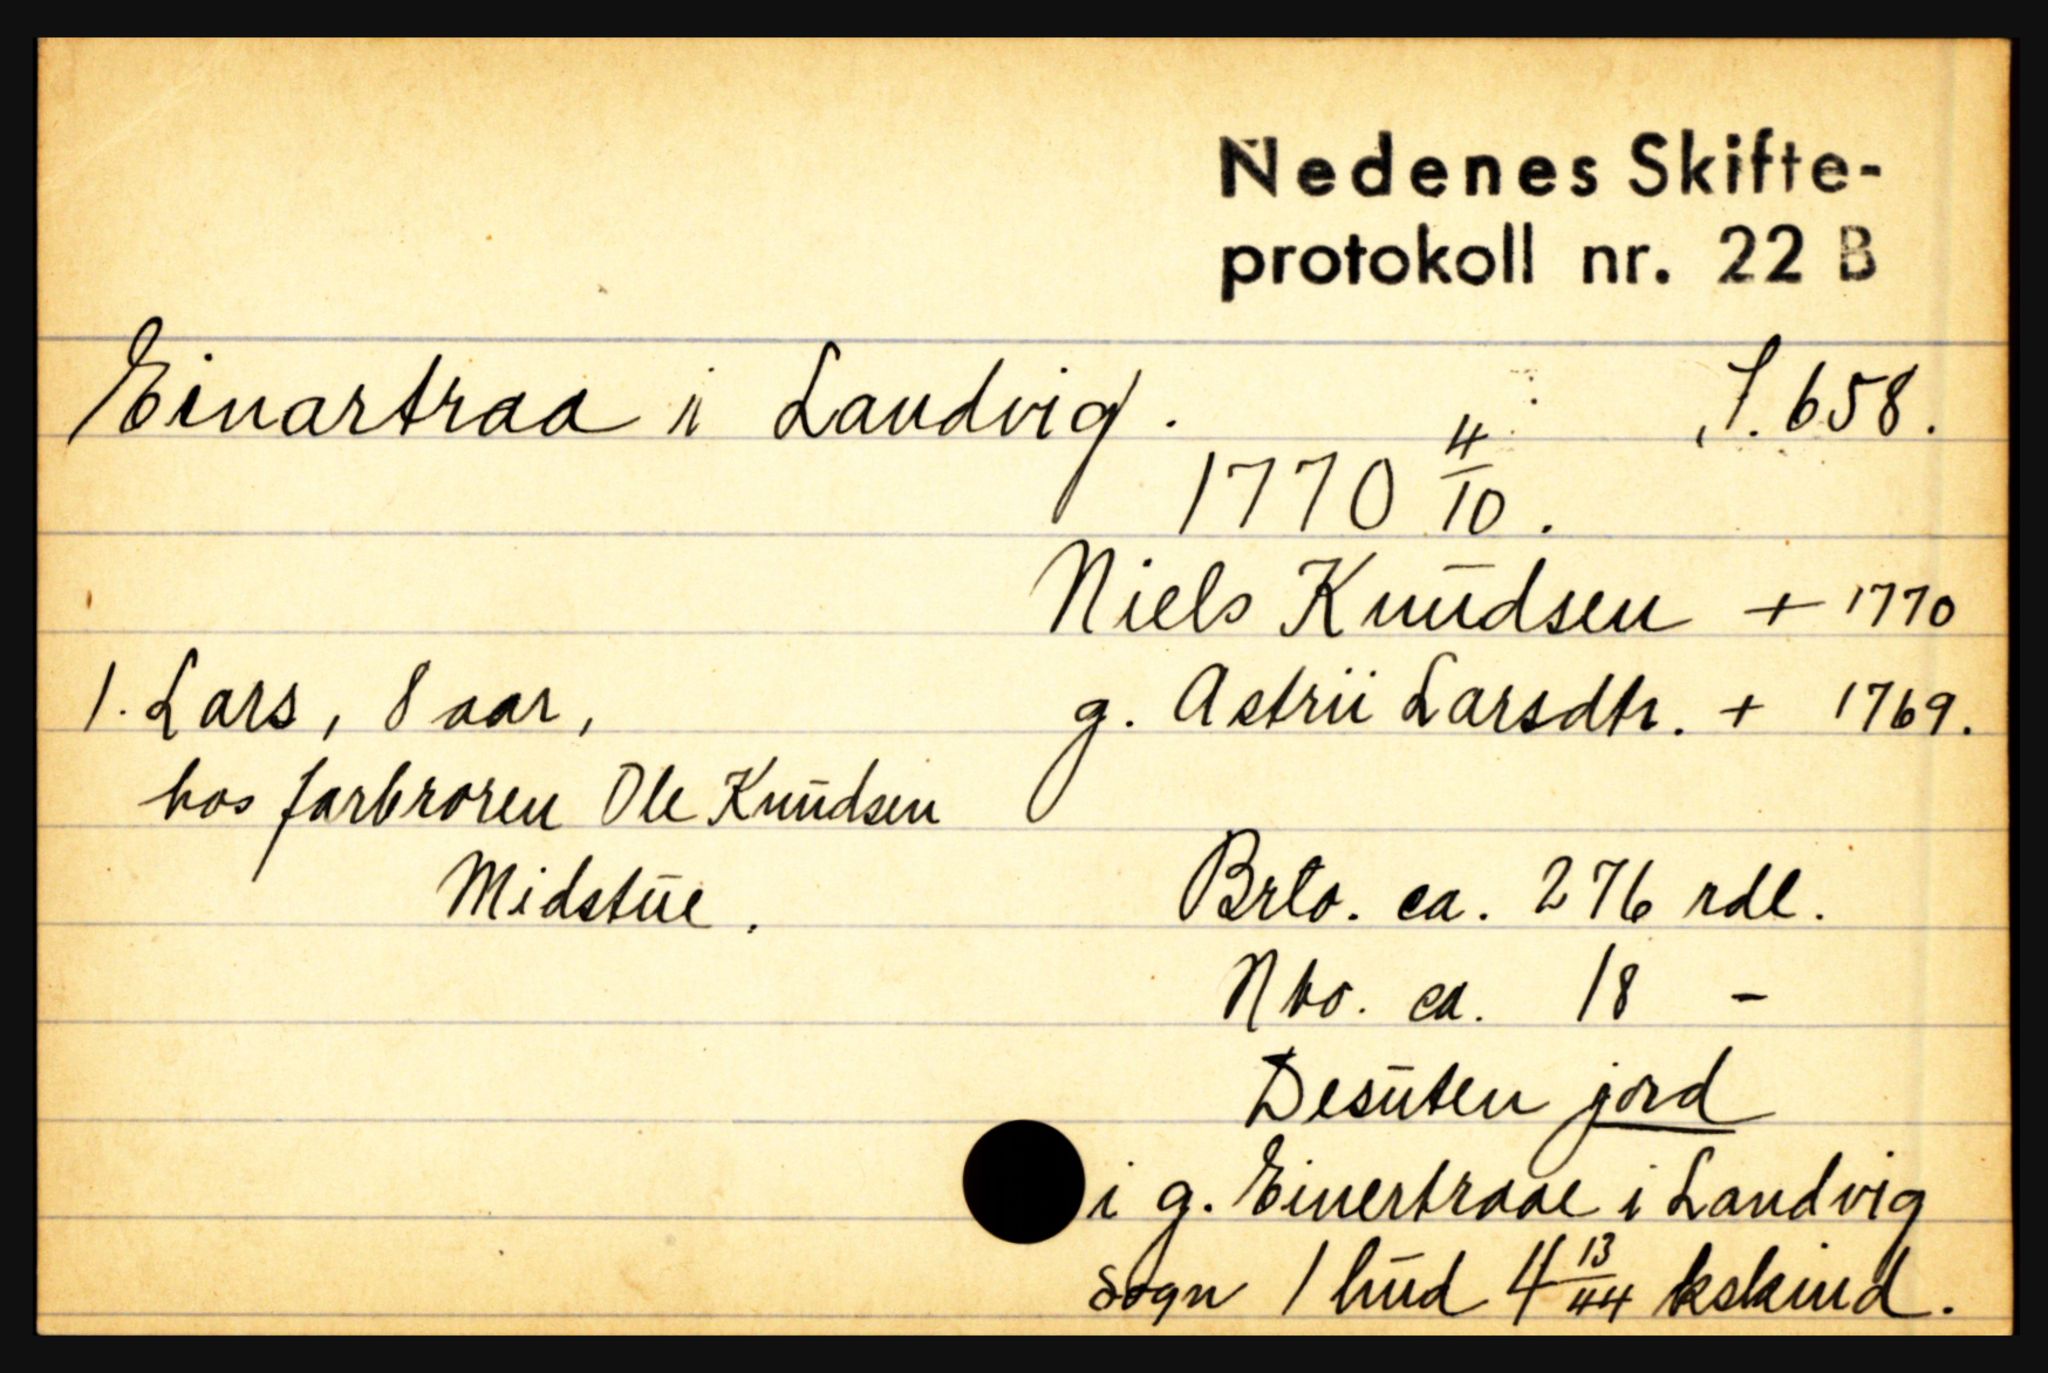 Nedenes Skifte-
protokoll nr. 22 B
Einartraa i Landvig. S. 658.
1770 4/10.
Niels Knudsen + 1770
1. Lars, 8 aar, g. Astrii Larsdtr. + 1769.
hos farbroren Ole Knudsen
Midstue. Brto. ca. 276 rdl.
Nto. ca. 18 -
Desuten jord
i g. Einertraae i Landvig
sogn 1 hud 4 13/44 kskind.